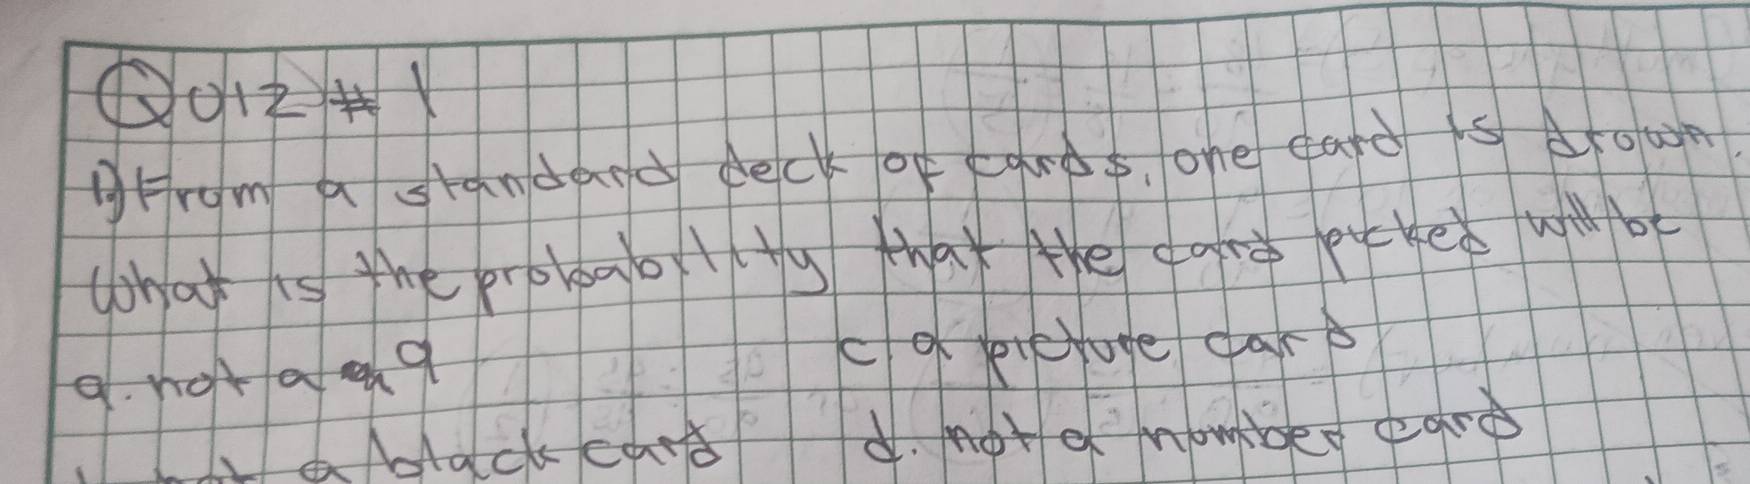 Quiz #1
1) From a standard deck of cards, one card is drown.
What is the probability that the card picked will be
a. not a 9
c a picture card
a black card
d. not a number card